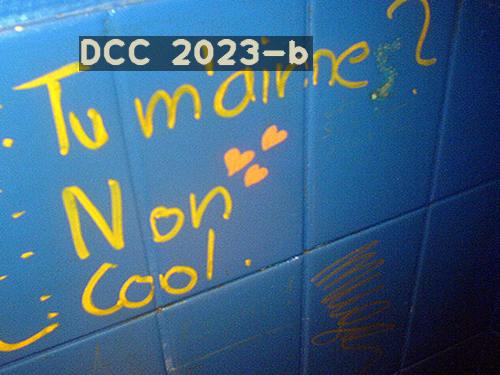 DCC 2023-b
Tu m'aimes?
Non
Cool.